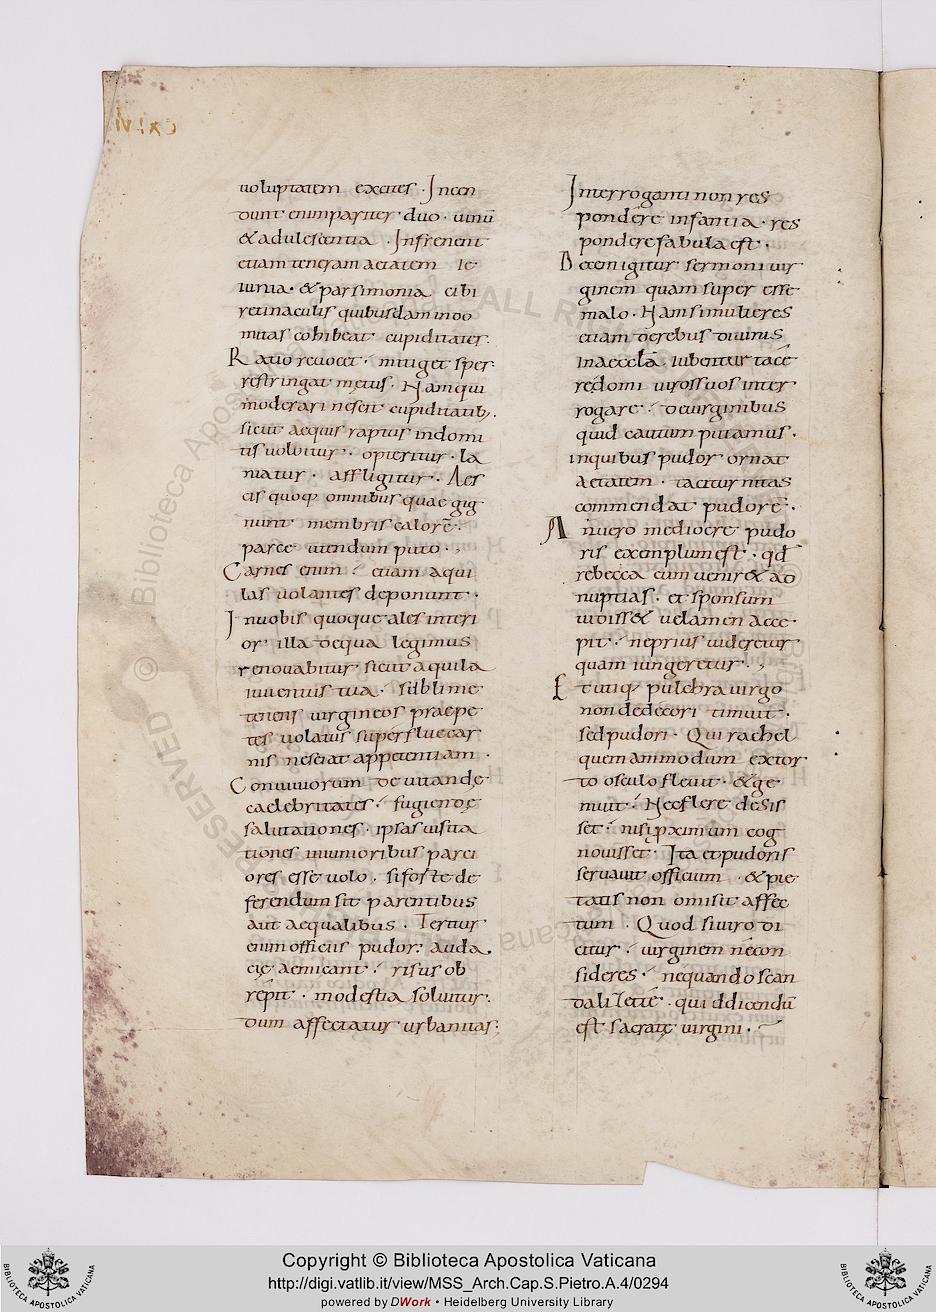 uoluptatem excites · Incen
dunt enim pariter duo · uinū
& adulescentia · Infrenent
etiam teneram aetatem ie
iunia · & parsimonia cibi
retinaculis quibusdam indo
mitas cohibeat cupiditates ·
Ratio reuocet · mitiget spes
restringat metus · Nam qui
moderari nescit cupiditatib;
sicut aequis raptus indomi
tis uoluitur · opteritur · la
niatur · affligitur · Aes
cis quoq; omnibus quae gig
nunt membris calorē ·
parce utendum puto ·
Carnes enim · etiam aqui
las uolantes deponunt ·
In uobis quoque ales interi
or illa de qua legimus
renouabitur sicut aquila
iuuentus tua · sublime
tenens uirgineos praepe
tes uolatus superfluae car
nis nesciat appetentiam ·
Conuiuiorum deuitandę
caelebritates · fugiendę
salutationes · ipsas uisita
tiones in iunioribus parci
ores esse uolo · si forte de
ferendum sit parentibus
aut aequalibus · Teritur
enim officiis pudor · auda
cię aemicant · risus ob
repit · modestia soluitur ·
dum affectatur urbanitas ·
Interroganti non res
pondere infantia · res
pondere fabula est ·
Deesse igitur sermoni uir
ginem quam super esse
malo · Nam si mulieres
etiam de rebus diuinis
in aecclā iubentur tacē
re domi uiros suos inter
rogare · de uirginibus
quid cautum putamus ·
in quibus pudor ornat
aetatem · taciturnitas
commendat pudorē ·
An uero mediocre pudo
ris exemplum est · qd
rebecca cum uenir& ad
nuptias · et sponsum
uidiss& uelamen acce
pit · ne prius uideretur
quam iungeretur ·
Et utiq; pulchra uirgo
non dedecori timuit ·
sed pudori · Qui rachel
quem ammodum extor
to osculo fleuit · & ge
muit · Nec flere desis
set · nisi pximum cog
nouisset · Ita et pudoris
seruauit officium · & pie
tatis non omisit affec
tum · Quod si uiro di
citur · uirginem ne con
sideres · ne quando scan
dali&etē · quid dicendū
est sacratę uirgini ·
© Biblioteca Apostolica Vaticana ALL RIGHTS RESERVED
Copyright © Biblioteca Apostolica Vaticana
http://digi.vatlib.it/view/MSS_Arch.Cap.S.Pietro.A.4/0294
powered by DWork • Heidelberg University Library
BIBLIOTECA APOSTOLICA VATICANA
BIBLIOTECA APOSTOLICA VATICANA